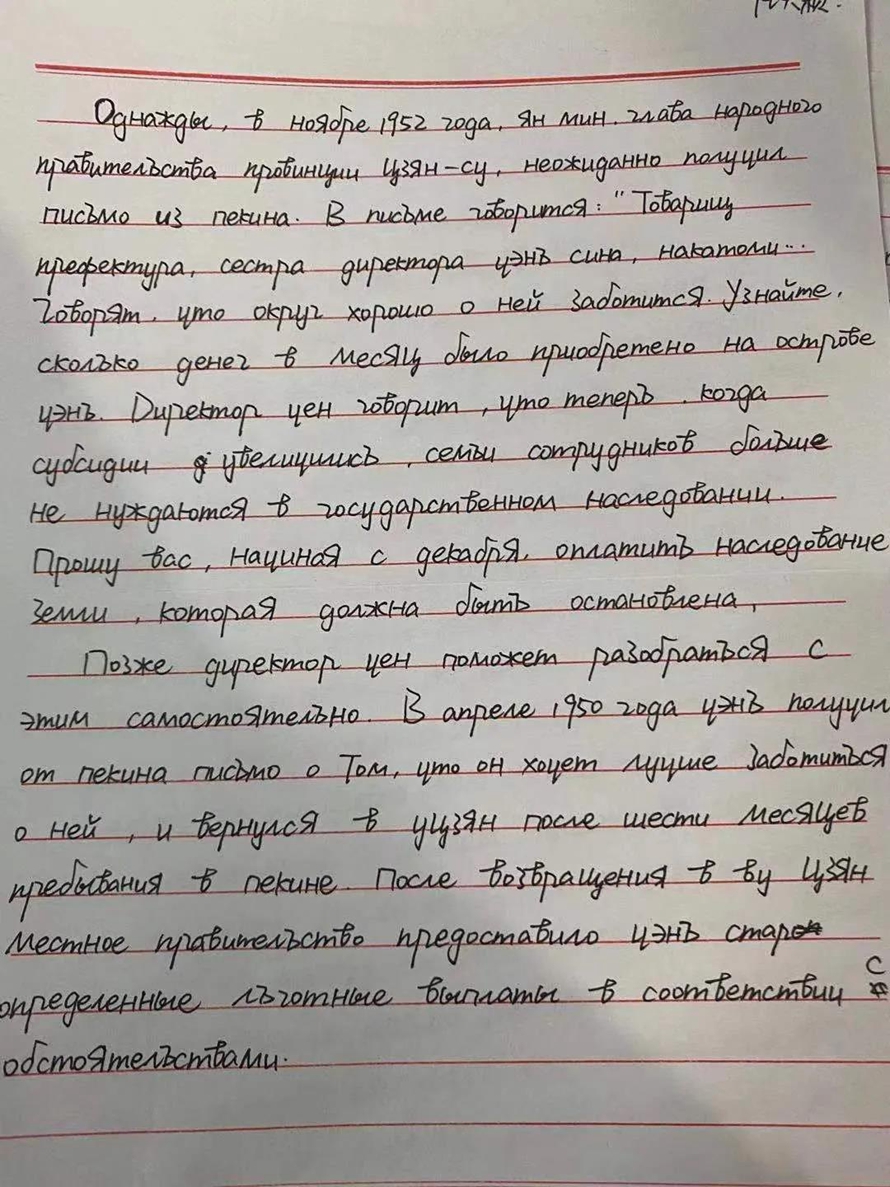 Однажды, в ноябре 1952 года, ян мин, глава народного
правительства провинции Цзян-су, неожиданно получил
письмо из пекина. В письме говорится: "Товарищ
префектура, сестра директора цэнь сина, накатоми...
Говорят, что округ хорошо о ней заботится. Узнайте,
сколько денег в месяц было приобретено на острове
цэнь. Директор цен говорит, что теперь, когда
субсидии увеличились, семьи сотрудников больше
не нуждаются в государственном наследовании.
Прошу вас, начиная с декабря, оплатить наследование
земли, которая должна быть остановлена,
Позже директор цен поможет разобраться с
этим самостоятельно. В апреле 1950 года цэнь получил
от пекина письмо о Том, что он хочет лучше заботиться
о ней, и вернулся в уцзян после шести месяцев
пребывания в пекине. После возвращения в ву Цзян
местное правительство предоставило цэнь
определенные льготные выплаты в соответствии с
обстоятельствами.